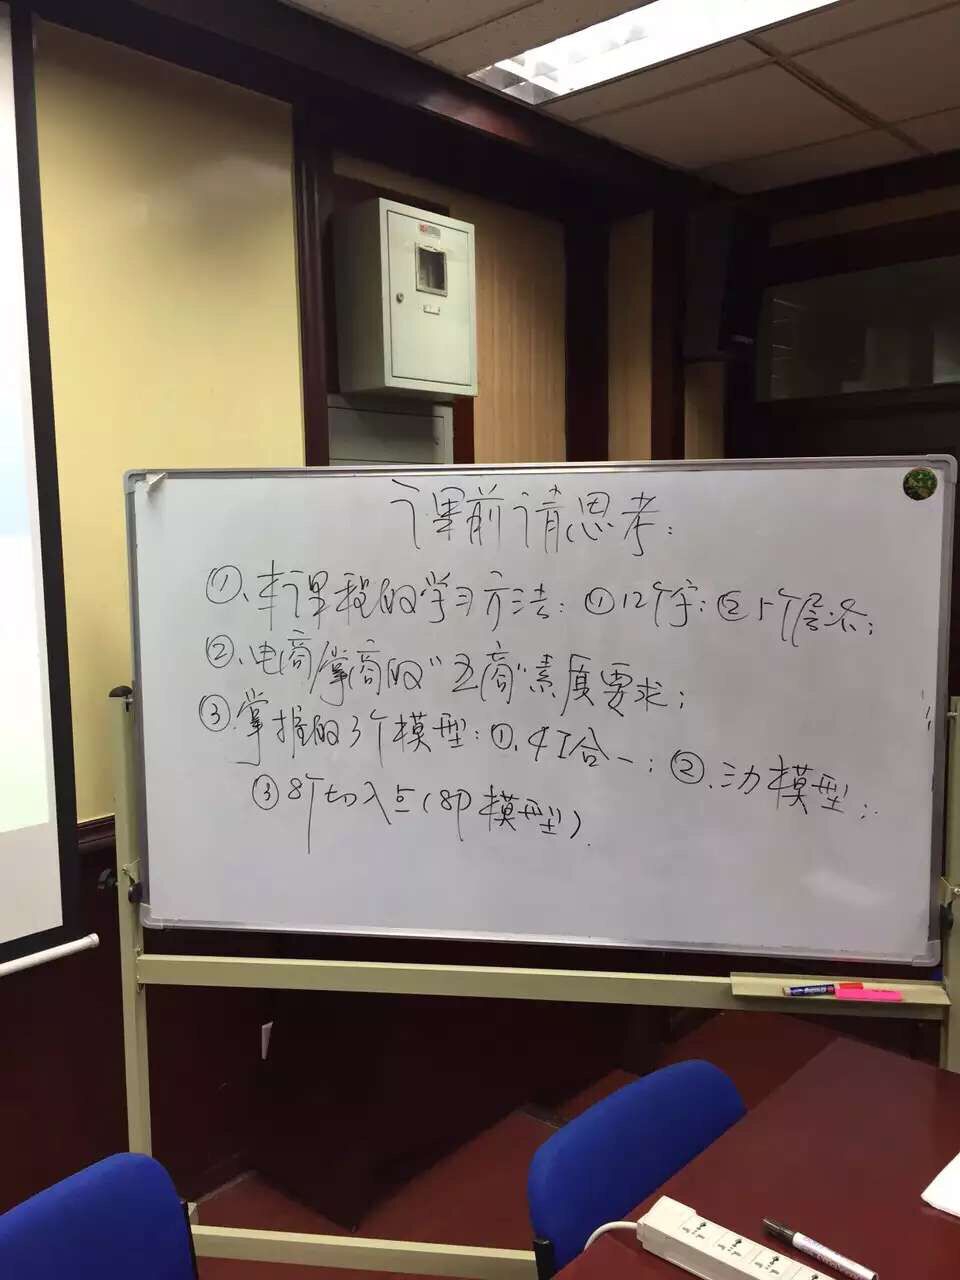 课前请思考：
①、本课程的学习方法：①12个字；②5个层次；
②、电商掌商的“五商”素质要求；
③、掌握的3个模型：①、4I合一；②、动模型；
③8个切入点（8P模型）